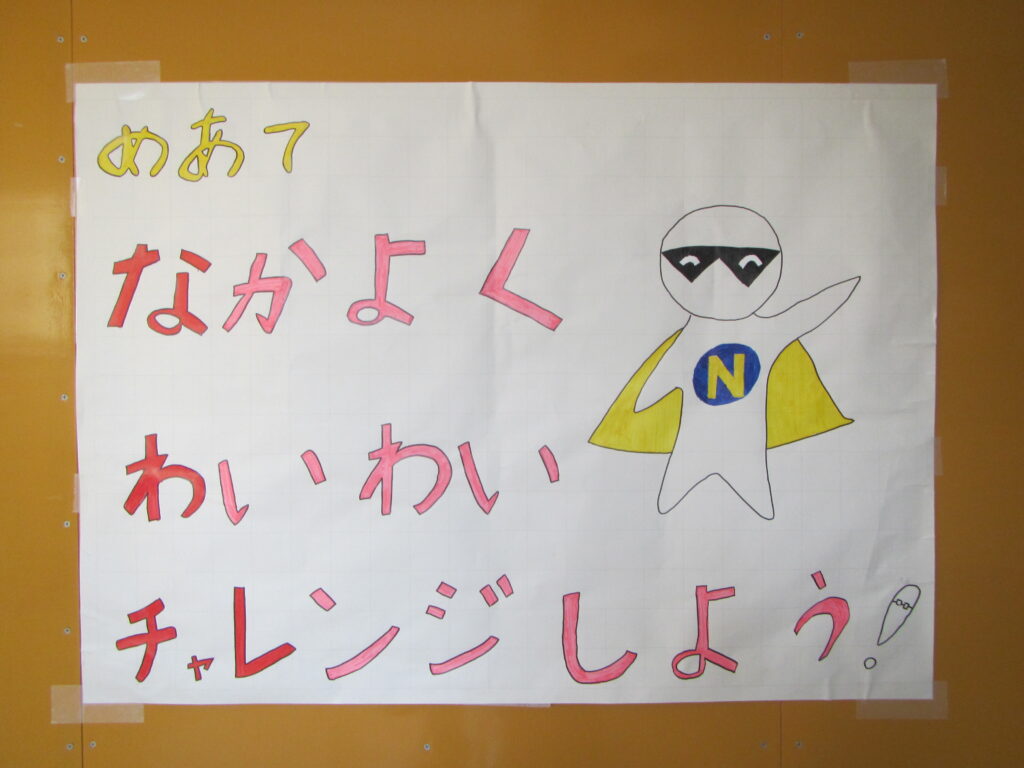 めあて
なかよく
N
わいわい
チャレンジしよう!